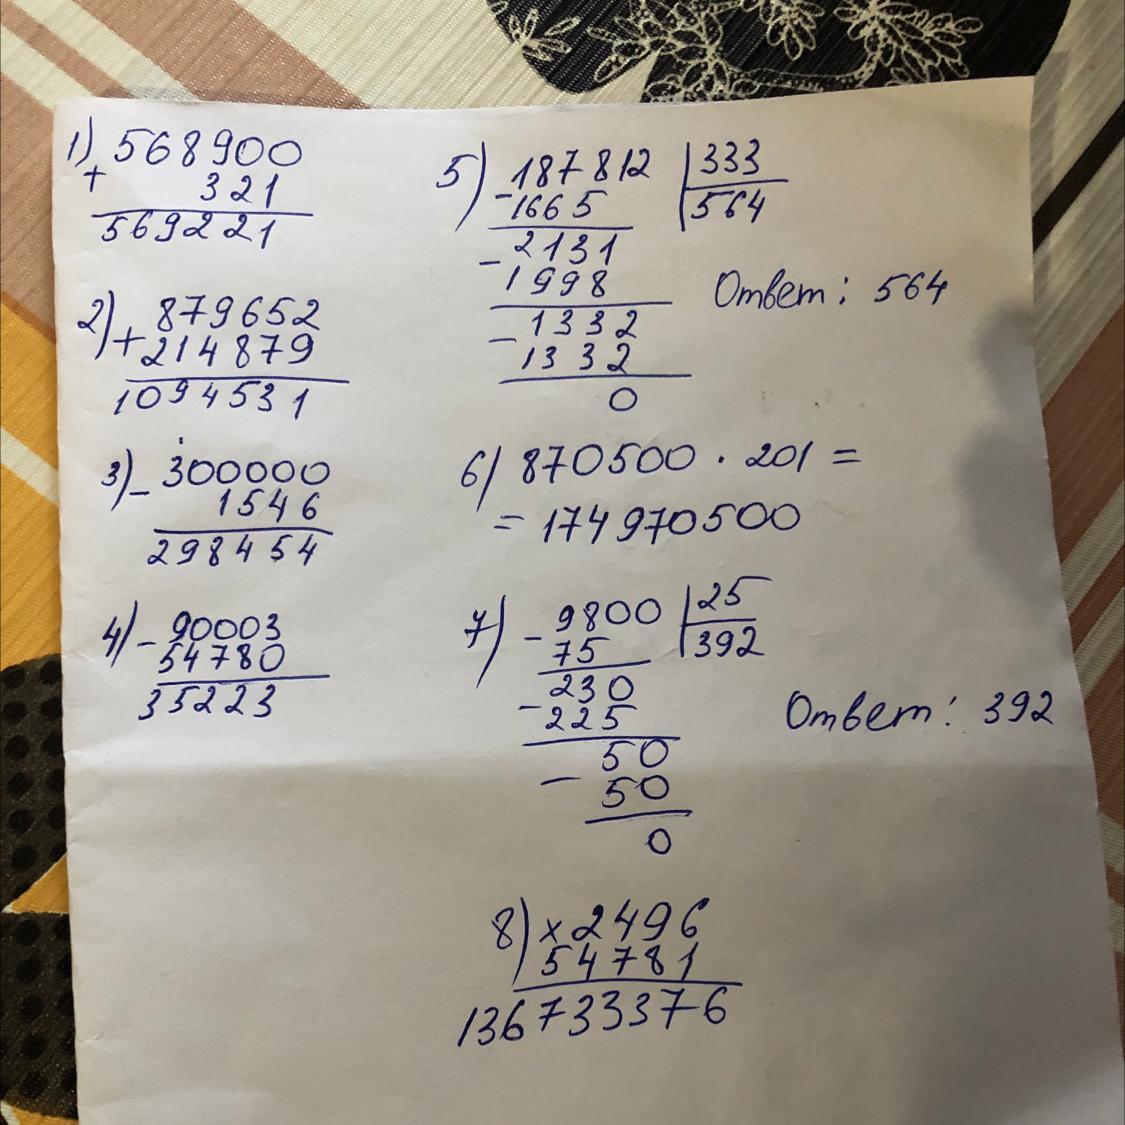 1) 568900
+ 321
569221
2) 879652
+ 214879
1094531
3) - 300000
1546
298454
4) - 90003
54780
35223
5) - 187812 | 333
1665 | 564
- 2131
1998
- 1332
1332
0
Ответ: 564
6) 870500 · 201 =
= 174970500
7) - 9800 | 25
75 | 392
- 230
225
- 50
50
0
Ответ: 392
8) × 2496
54781
136733376